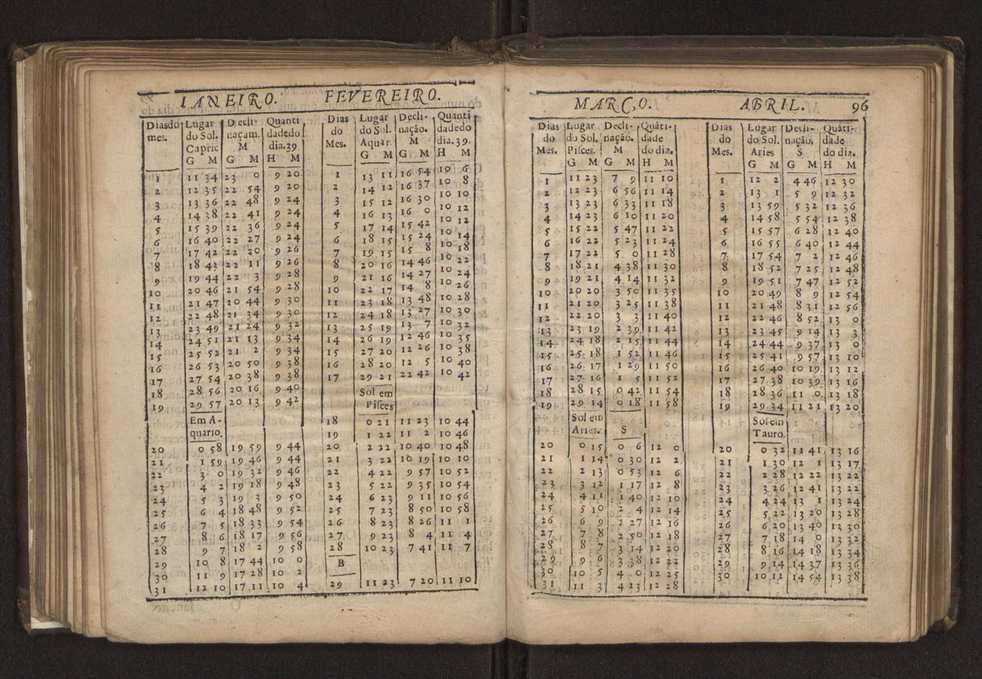 IANEIRO. FEVEREIRO.
Dias do mes. Lugar do Sol. Capric G M Decli- naçam. M G M Quanti dade do dia. 39 H M
1 11 34 23 0 9 20
2 12 35 22 54 9 20
3 13 36 22 48 9 24
4 14 38 22 41 9 24
5 15 39 22 36 9 24
6 16 40 22 27 9 24
7 17 42 22 20 9 26
8 18 43 22 11 9 26
9 19 44 22 3 9 28
10 20 46 21 54 9 28
11 21 47 10 44 9 30
12 22 48 21 34 9 30
13 23 49 21 24 9 32
14 24 51 21 13 9 34
15 25 52 21 2 9 34
16 26 53 20 50 9 38
17 27 54 20 38 9 38
18 28 56 20 16 9 40
19 29 57 20 13 9 42
Em A- quario.
20 0 58 19 59 9 44
21 1 59 19 46 9 44
22 3 0 19 32 9 46
23 4 2 19 18 9 48
24 5 3 19 3 9 50
25 6 4 18 48 9 52
26 7 5 18 33 9 54
27 8 6 18 17 9 56
28 9 7 18 2 9 58
29 10 8 17 44 10 0
30 11 9 17 28 10 2
31 12 10 17 11 10 4
Dias do Mes. Lugar do Sol. Aquar. G M Decli- nação. M G M Quanti dade do dia. 39. H M
1 13 11 16 54 10 6
2 14 12 16 37 10 8
3 15 12 16 30 10 10
4 16 13 16 0 10 12
5 17 14 15 42 10 12
6 18 15 15 24 10 14
7 19 15 15 8 10 18
8 20 16 14 46 10 22
9 21 16 14 27 10 24
10 22 17 14 8 10 26
11 23 18 13 48 10 28
12 24 18 13 27 10 30
13 25 19 13 7 10 32
14 26 19 12 46 10 35
15 27 20 12 26 10 38
16 28 20 12 5 10 40
17 29 21 22 42 10 42
Sol em Pisces
18 0 21 11 23 10 44
19 1 22 11 2 10 46
20 2 22 10 40 10 48
21 3 22 10 19 10 10
22 4 22 9 57 10 52
23 5 22 9 35 10 54
24 6 23 9 11 10 56
25 7 23 8 50 10 58
26 8 23 8 26 11 1
27 9 23 8 4 11 4
28 10 23 7 41 11 7
B
29 11 23 7 20 11 10
MARÇO. ABRIL. 96
Dias do Mes. Lugar do Sol. Pisces. G M Decli- nação. M G M Quãti- dade do dia. H M
1 11 23 7 9 11 10
2 12 23 6 56 11 14
3 13 23 6 33 11 18
4 14 23 6 10 11 20
5 15 22 5 47 11 22
6 16 22 5 23 11 24
7 17 22 5 0 11 28
8 18 21 4 38 11 30
9 19 21 4 14 11 32
10 20 20 3 50 11 35
11 21 20 3 25 11 38
12 22 20 3 3 11 40
13 23 19 2 39 11 42
14 24 18 2 15 11 44
15 25 18 1 52 11 46
16 26 17 1 29 11 50
17 27 16 1 5 11 52
18 28 15 0 42 11 54
19 29 14 0 18 11 58
Sol em Aries. S
20 0 15 0 6 12 0
21 1 14 0 30 12 2
22 2 13 0 53 12 6
23 3 12 1 17 12 8
24 4 11 1 40 12 10
25 5 10 2 4 12 14
26 6 9 2 27 12 16
27 7 8 2 50 12 18
28 8 7 3 14 12 20
29 9 6 3 38 12 22
30 10 5 4 0 12 25
31 11 3 4 23 12 28
Dias do Mes. Lugar do Sol. Aries G M Decli- nação. S G M Quãti- dade do dia. H M
1 12 2 4 46 12 30
2 13 1 5 9 12 32
3 13 59 5 32 12 36
4 14 58 5 54 12 38
5 15 57 6 28 12 40
6 16 55 6 40 12 44
7 17 54 7 2 12 46
8 18 52 7 25 12 48
9 19 51 7 47 12 52
10 20 49 8 9 12 54
11 21 48 8 31 12 56
12 22 46 8 52 13 0
13 23 45 9 14 13 3
14 24 44 9 37 13 0
15 25 41 9 57 13 10
16 26 40 10 19 13 12
17 27 38 10 39 13 16
18 28 36 11 0 13 18
19 29 34 11 21 13 20
Sol em Tauro.
20 0 32 11 41 13 16
21 1 30 12 1 13 17
22 2 28 12 22 13 22
23 3 26 12 41 13 22
24 4 24 13 1 13 24
25 5 22 13 20 13 28
26 6 20 13 40 13 30
27 7 18 14 0 13 32
28 8 16 14 18 13 34
29 9 14 14 37 13 36
30 10 12 14 54 13 38